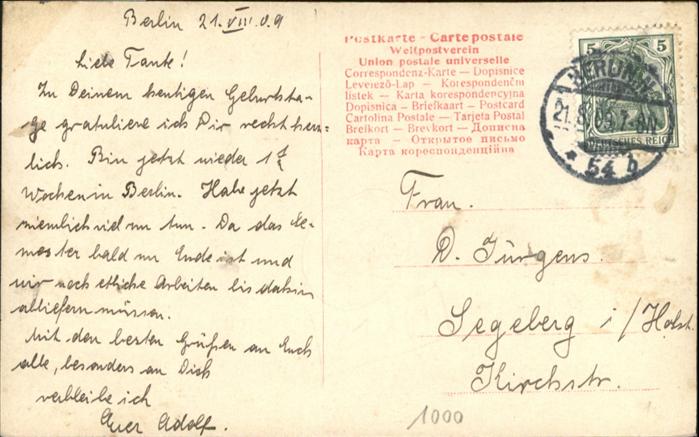 Berlin 21.VIII.09
Liebe Tante!
Zu Deinem heutigen Geburtsta-
ge gratuliere ich Dir recht herz-
lich. Bin jetzt wieder 1½
Wochen in Berlin. Habe jetzt
ziemlich viel zu tun. Da das Se-
mester bald zu Ende ist und
wir noch etliche Arbeiten bis dahin
abliefern müssen.
Mit den besten Grüßen an Euch
alle, besonders an Dich
verbleibe ich
Euer Adolf.
Postkarte - Carte postale
Weltpostverein
Union postale universelle
Correspondenz-Karte — Dopisnice
Levelező-Lap — Korespondenčni
listek — Karta korespondencyjna
Dopisnica — Briefkaart — Postcard
Cartolina Postale — Tarjeta Postal
Brefkort — Brevkort — Дописна
карта — Открытое письмо
Карта кореспонденційна
5 5
DEUTSCHES REICH
BERLIN
21.8.09.7-8N.
* 54 b
Frau.
D. Jürgens.
Segeberg i/Holst.
Kirchstr.
1000